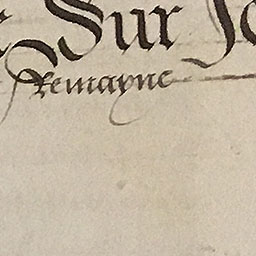 Sur Jo
Remayne